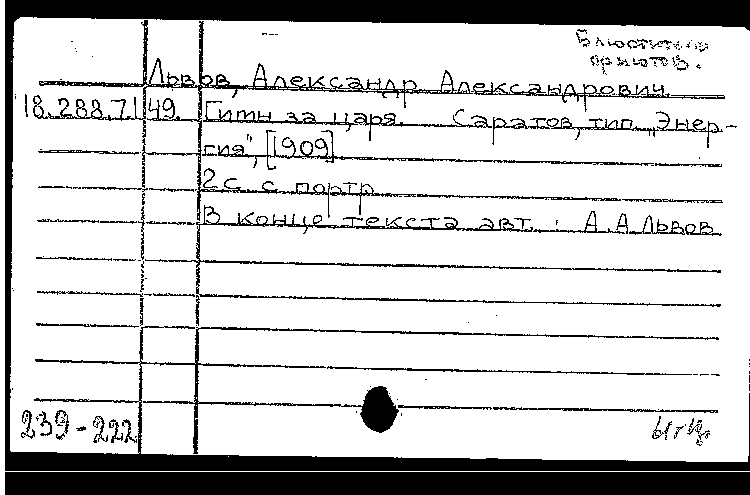 Блюститель
приютов.
Львов, Александр Александрович.
18.288.7.149. Гимн за царя. Саратов, тип. „Энер-
гия", [1909]
2с. с портр.
В конце текста авт.: А.А.Львов
239-222